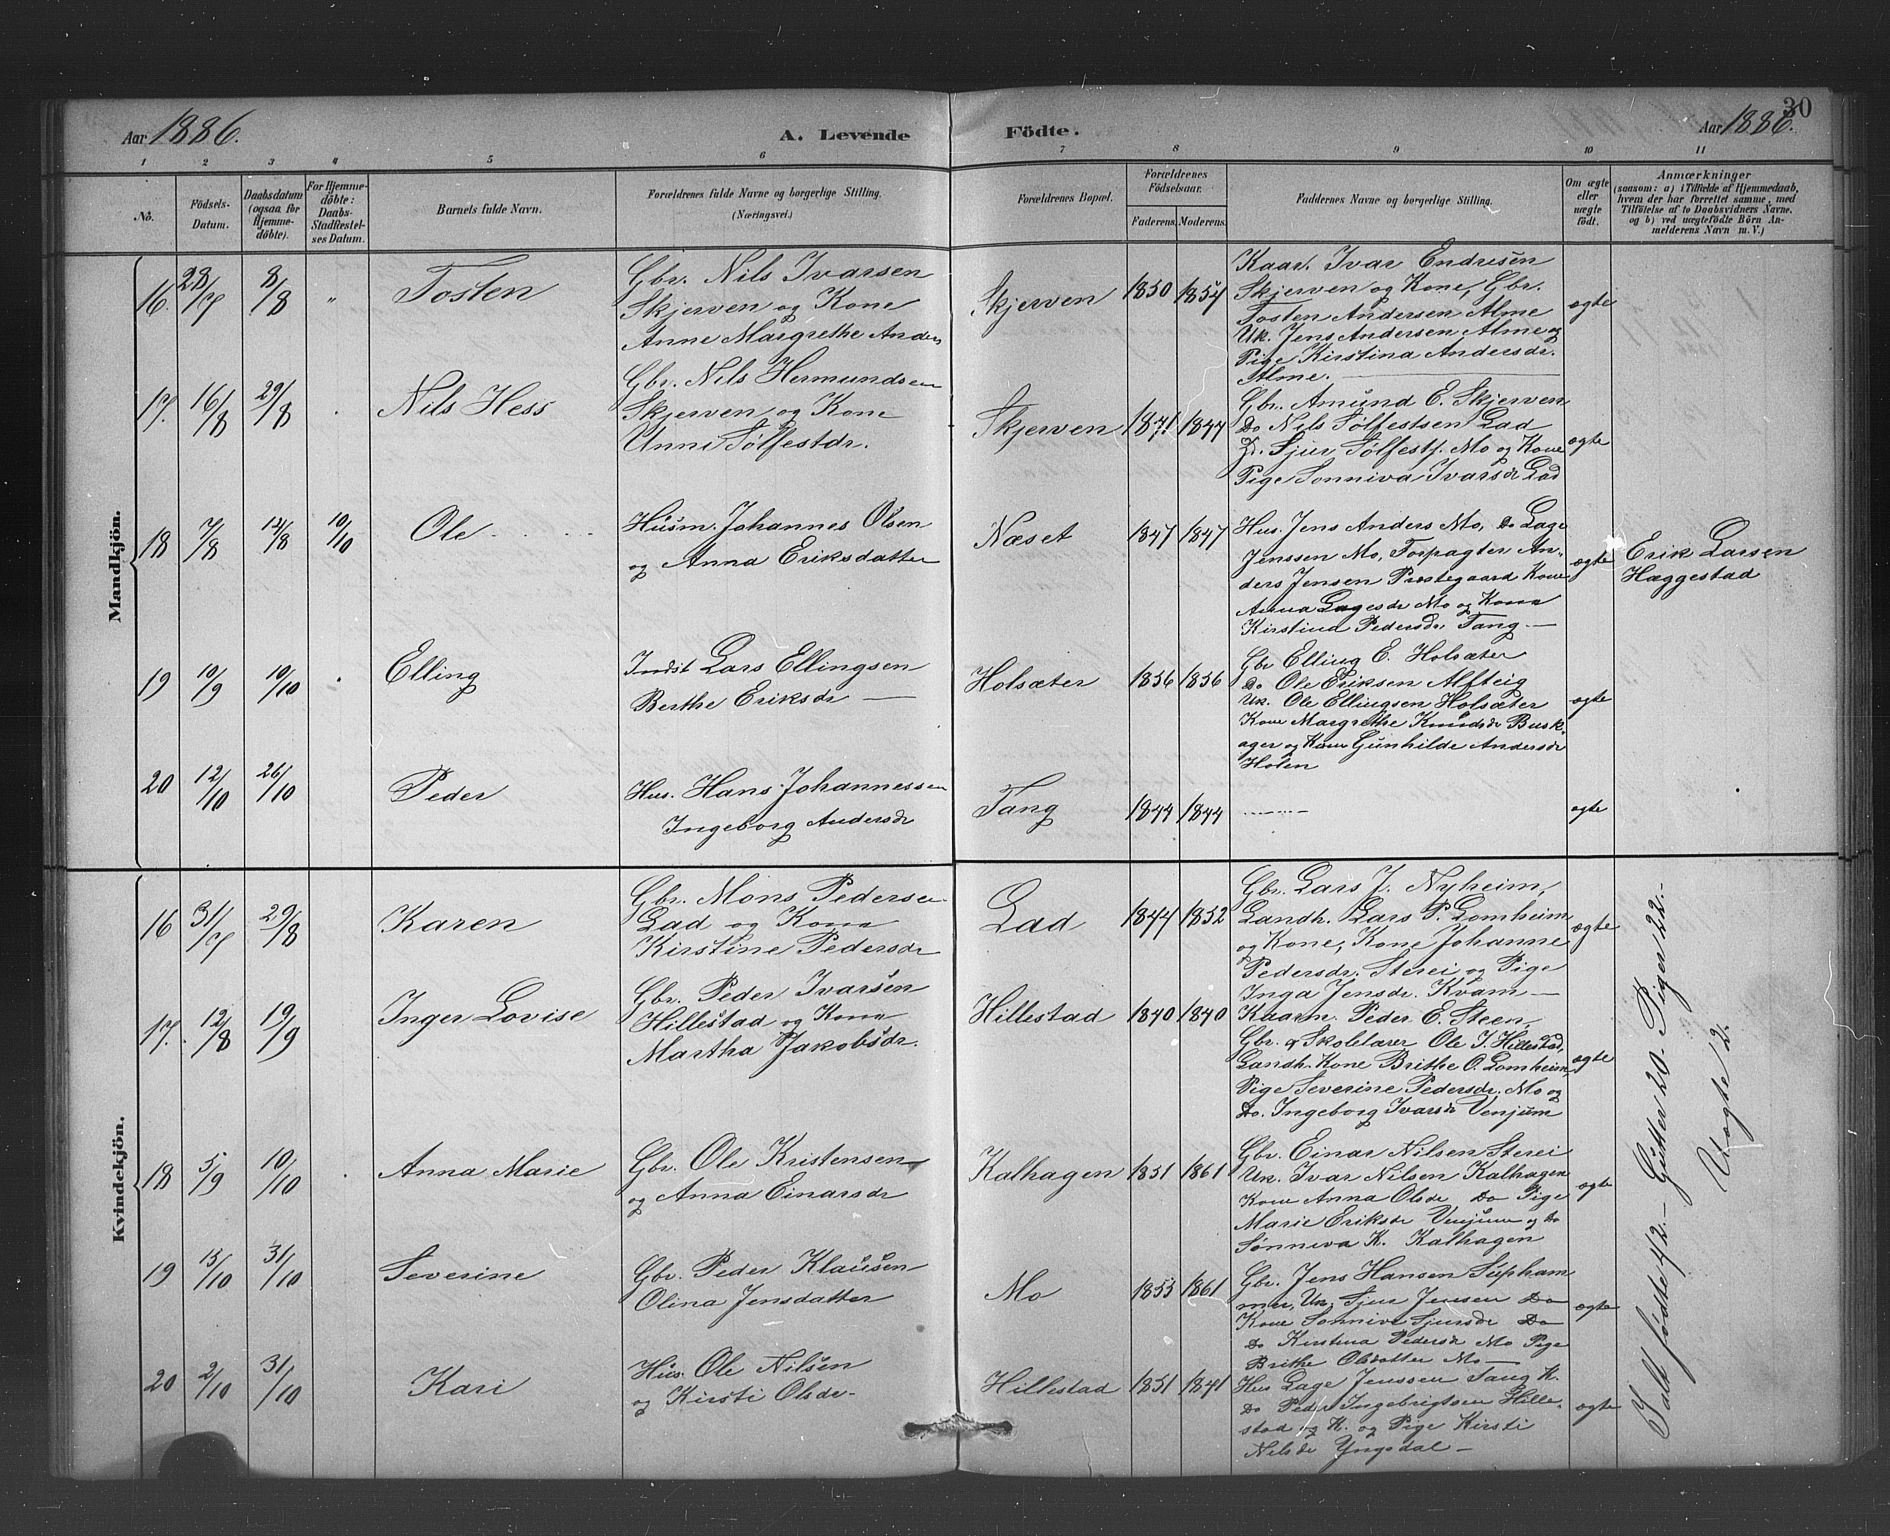 30
Aar 1886.
A. Levende Födte.
Aar 1886.
1 2 3 4 5 6 7 8 9 10 11
No.
Födsels-
Datum.
Daabsdatum
(ogsaa for
Hjemme-
döbte).
For Hjemme-
döbte:
Daabs-
Stadfæstel-
ses Datum.
Barnets fulde Navn.
Forældrenes fulde Navne og borgerlige Stilling.
(Næringsvei.)
Forældrenes Bopæl.
Forældrenes
Födselsaar.
Faderens. Moderens.
Faddernes Navne og borgerlige Stilling.
Om ægte
eller
uægte
födt.
Anmærkninger
(saasom: a) i Tilfælde af Hjemmedaab,
hvem der har forrettet samme, med
Tilföielse af to Daabsvidners Navne,
og b) ved uægtefödte Börn An-
melderens Navn m. V.)
Mandkjön.
16. 28/7 8/8 "
Tosten
Gbr. Nils Ivarsen
Skjerven og Kone
Anne Margrethe Anders
Skjerven 1850 1854
Kaar. Ivar Endresen
Skjerven og Kone, Gbr.
Tosten Andersen Alme
Uk. Jens Andersen Alme og
Pige Kirstina Andersdr.
Alme.
ægte
17. 16/8 29/8
Nils Hess
Gbr. Nils Hermundsen
Skjerven og Kone
Unni Sølfestdr.
Skjerven 1871 1844
Gbr. Amund E. Skjerven
Do Nils Sølfestsen Lad
D. Sjur Sølfests. Mo og Kone
Pige Sønniva Ivarsdr Lad
ægte
18 7/8 12/8 10/10
Ole
Husm. Johannes Olsen
og Anna Eriksdatter
Næset 1847 1847
Hus. Jens Anders Mo, Do Lage
Jenssen Mo, Forpagter An-
ders Jensen Prestegaard Kone
Anna Lagesdr Mo og Kone
Kirstina Pedersdr Tang.
ægte
Erik Larsen
Hæggestad
19 10/9 10/10
Elling
Indst Lars Ellingsen
Berthe Eriksdr
Holsæter 1856 1856
Gbr Elling E. Holsæter
Do Ole Eriksen Alfteig
Uk. Ole Ellingsen Holsæter
Kone Margrethe Knudsdr Busk-
ager og Kone Gunhilde Andersdr
Holen
ægte
20 12/10 26/10
Peder
Hus. Hans Johannessen
Ingeborg Andersdr
Tang 1844 1844
ægte
Kvindekjön.
16 31/7 29/8
Karen
Gbr. Mons Pedersen
Lad og Kone
Kirstine Pedersdr
Lad 1844 1852
Gbr. Lars J. Nyheim,
Landh. Lars P. Lomheim
og Kone, Kone Johanne
Pedersdr. Sterei og Pige
Inga Jensdr. Kvam
ægte
17. 12/8 19/9
Inger Lovise
Gbr. Peder Ivarsen
Hillestad og Kone
Martha Jakobsdr.
Hillestad 1840 1840
Kaarm. Peder E. Steen,
Gbr. & Skolelærer Ole J. Hillestad,
Landh. Kone Brithe O. Lomheim,
Pige Severine Pedersdr. Mo og
Do. Ingeborg Ivarsdr Venjum
ægte
18 5/9 10/10
Anna Marie
Gbr. Ole Kristensen
og Anna Einarsdr
Kalhagen 1851 1861
Gbr. Einar Nilsen Sterei
Uk. Ivar Nilsen Kalhagen
Kone Anna Olsdr Do Pige
Marie Eriksdr Venjum og Do
Sønniva K. Kalhagen
ægte
19 15/10 31/10
Severine
Gbr. Peder Klausen
Olina Jensdatter
Mo 1853 1861
Gbr. Jens Hansen Supham
mer, Uk. Sjur Jensen Do
Kone Sønniva Sjursdr Do
Do Kirstina Pedersdr Mo Pige
Brithe Olsdatter Mo
ægte
20 2/10 31/10
Kari
Hus. Ole Nilsen
og Kirsti Olsdr
Hillestad 1851 1841
Hus Lage Jenssen Tang K.
Do Peder Ingebrigtsen Hille-
stad og K. og Pige Kirsti
Nilsdr Yngsdal
ægte
Ialt fødte 42.- Gutter 20. Piger 22.-
Uægte 2.